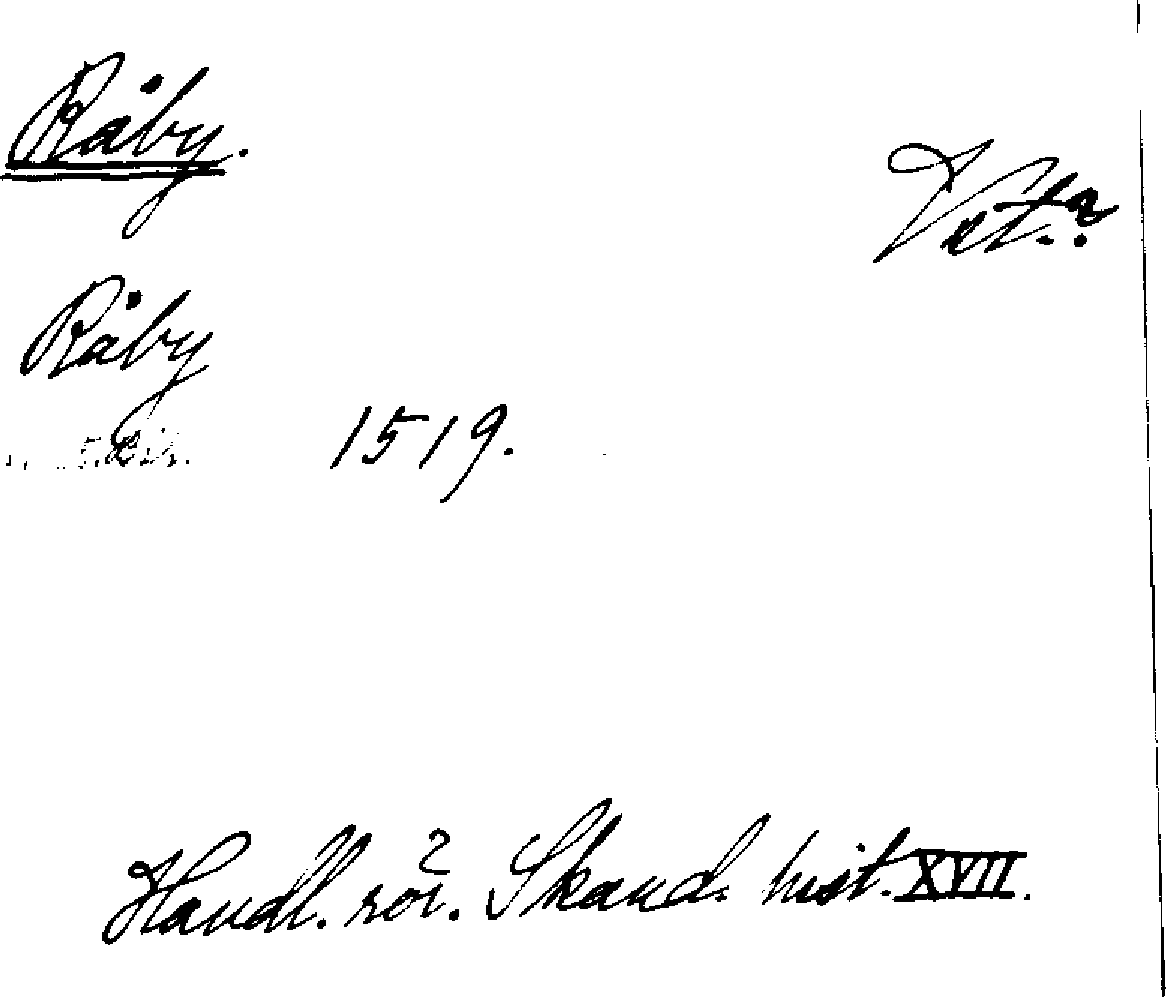 Råby.
Vst.?
Råby
1519.
Handl. rör. Skand. hist. XVII.